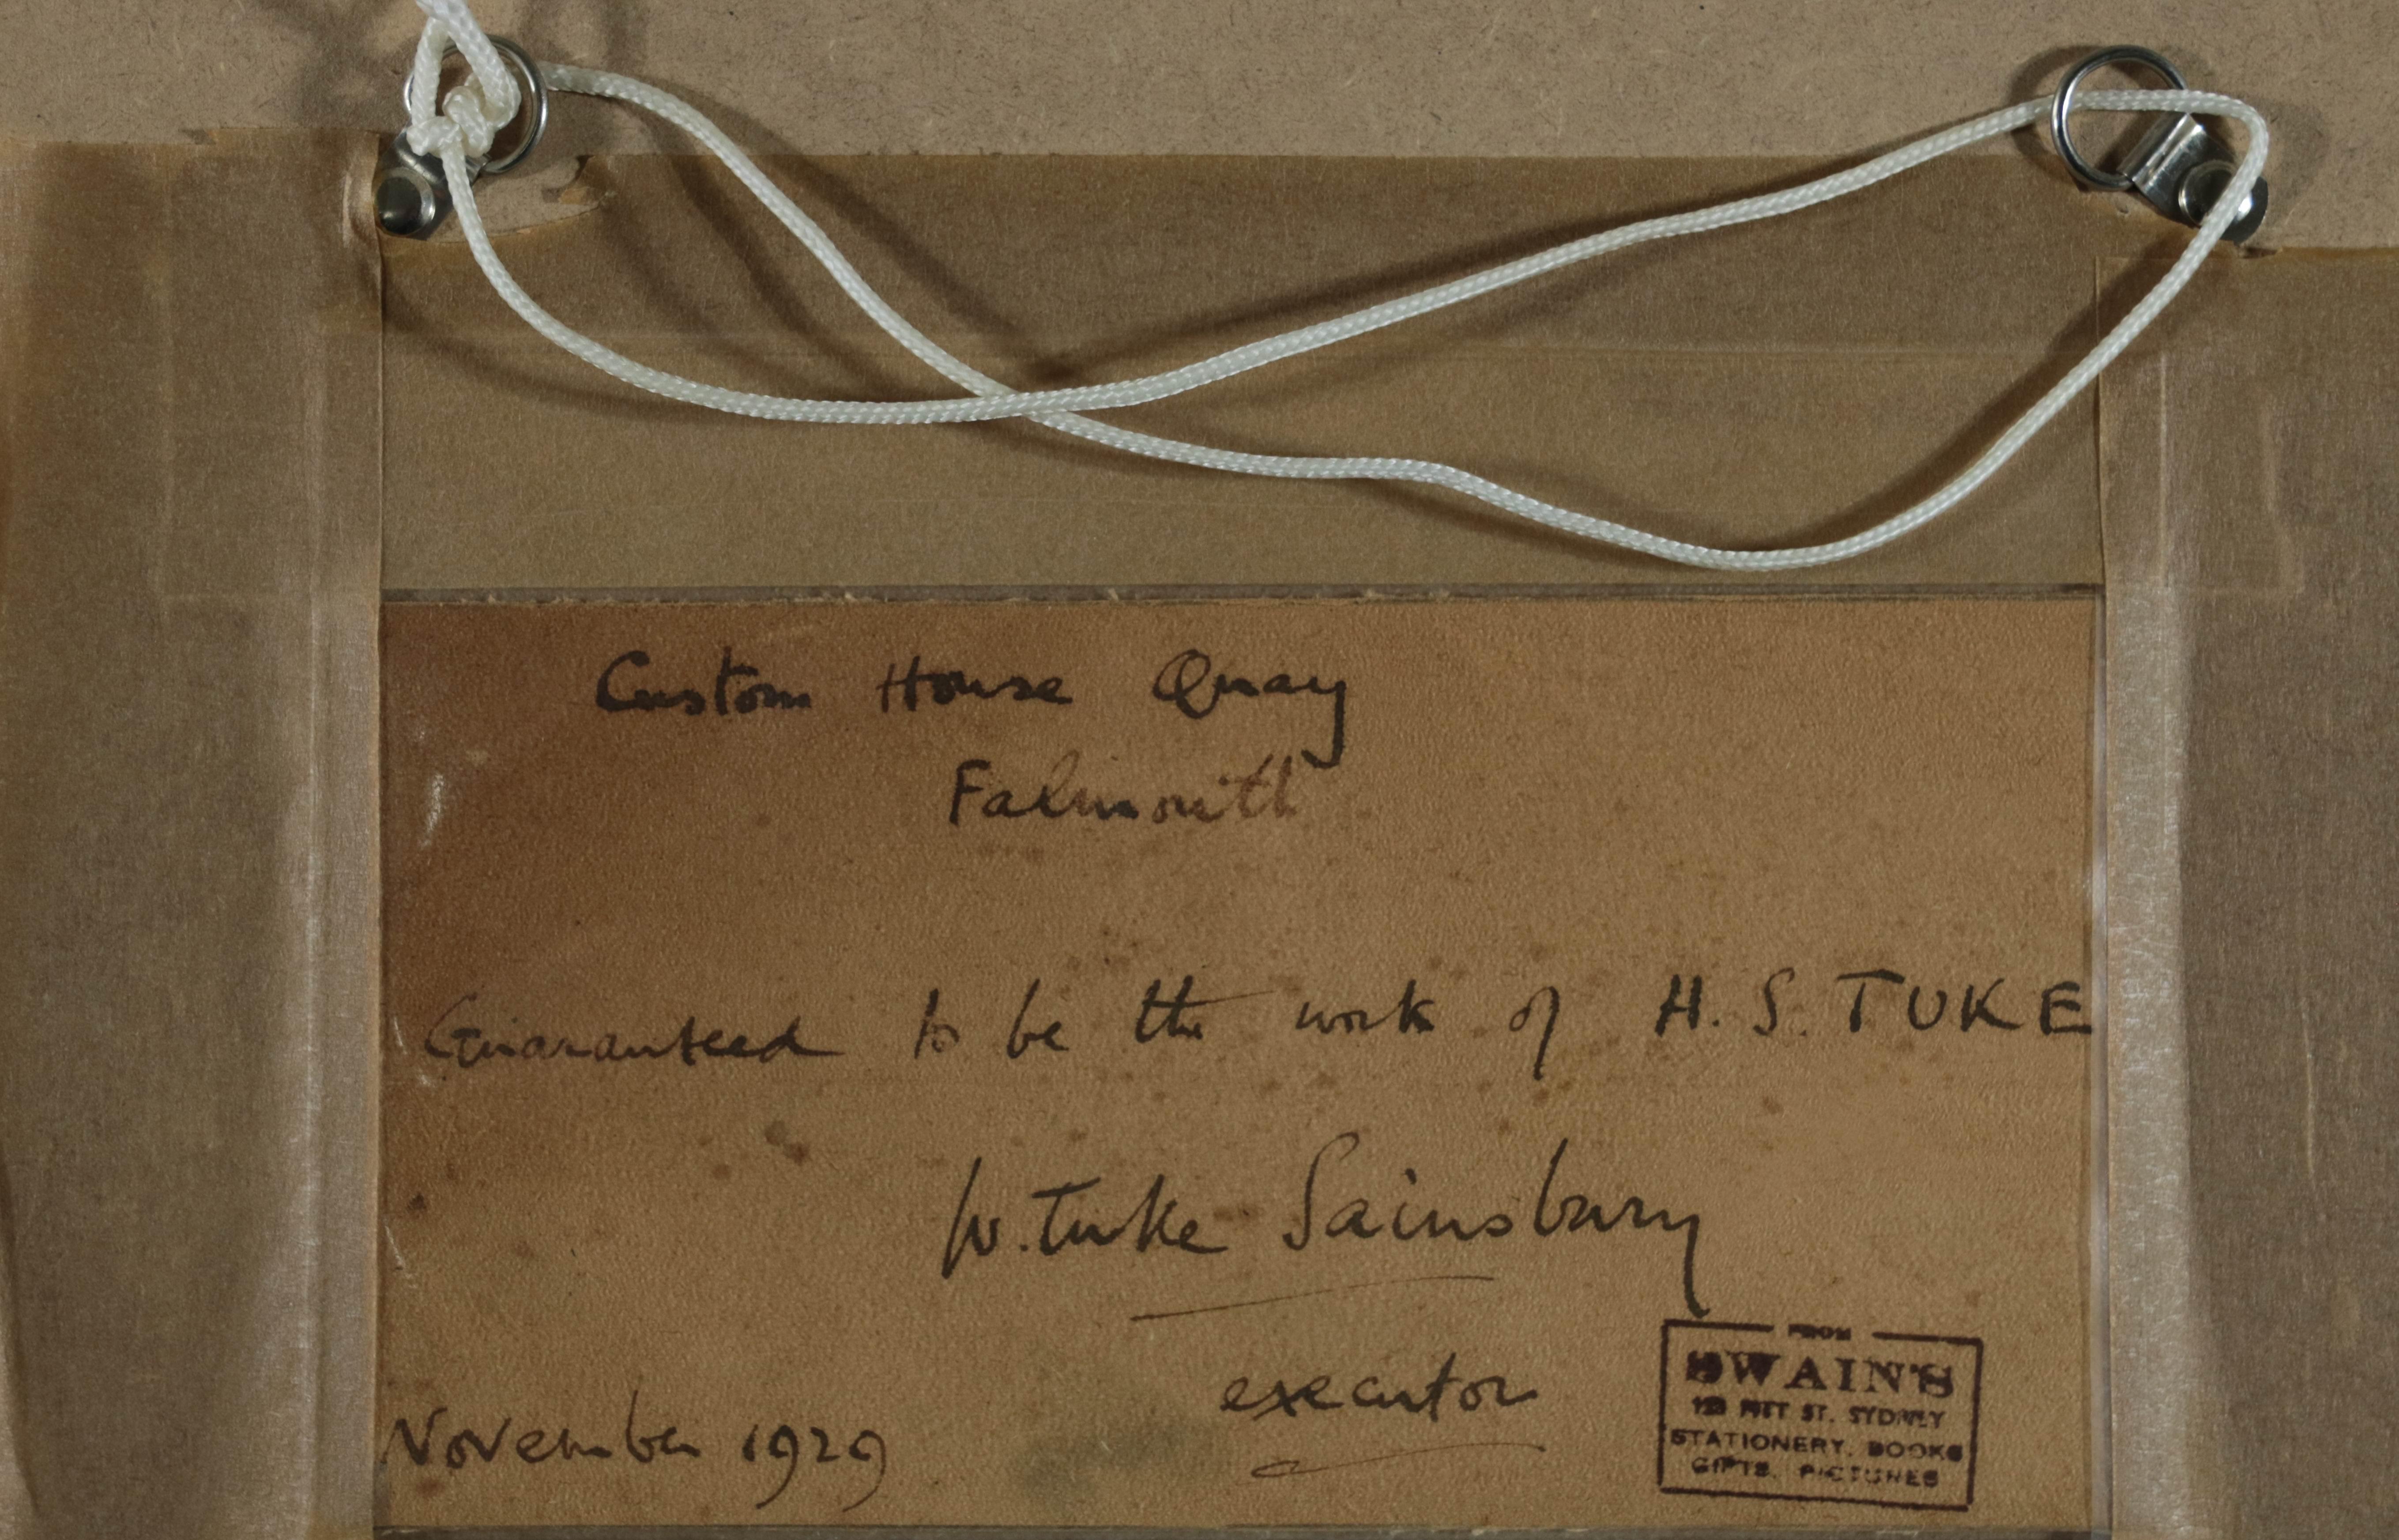 Custom House Quay
Falmouth
Guaranteed to be the work of H. S. TUKE
W. Tuke Sainsbury
executor
November 1929
FROM
SWAIN'S
PITT ST. SYDNEY
STATIONERY, BOOKS
GIFTS, PICTURES